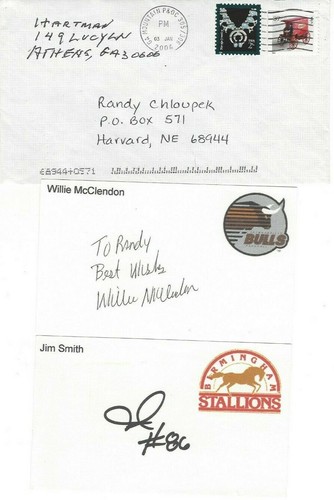 HARTMAN
149 LUCY LN
ATHENS, GA 30606
PM
03 JAN
2006
Randy Chloupek
P.O. BOX 571
Harvard, NE 68944
68944+0571
Willie McClendon
BULLS
To Randy
Best Wishes
Willie McClendon
Jim Smith
BIRMINGHAM
STALLIONS
#86